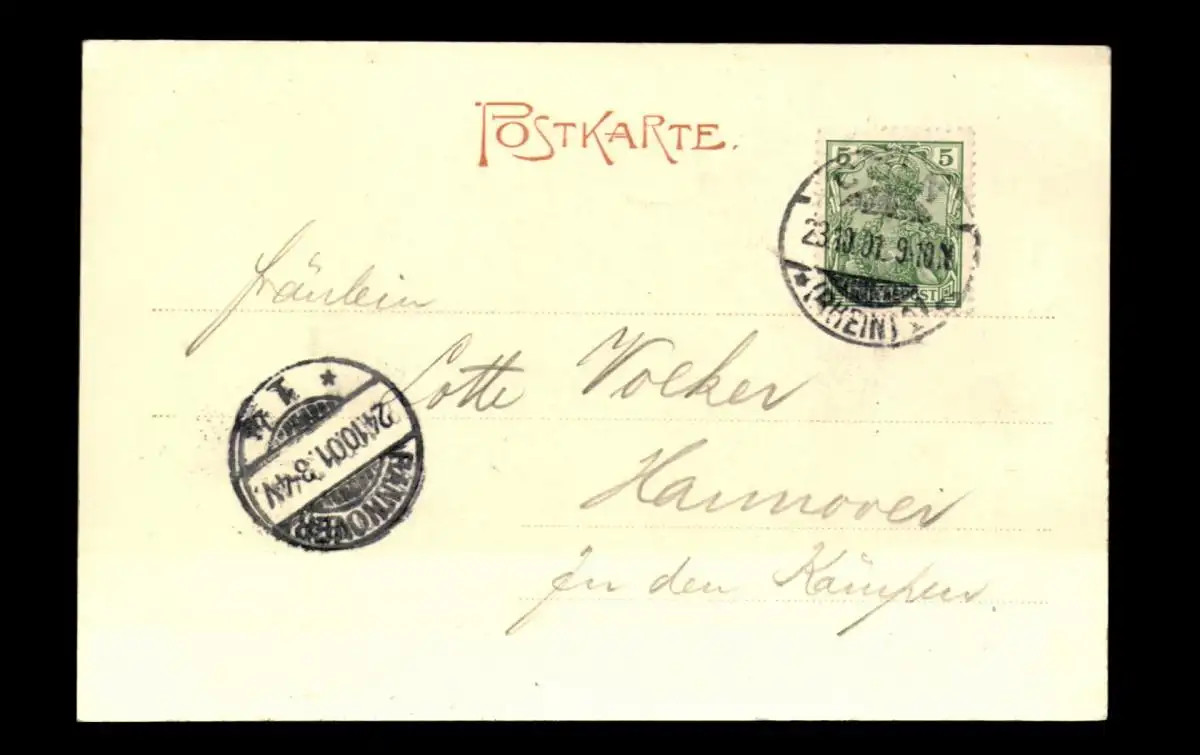 POSTKARTE.
5 5
23.10.01. 9-10.N.
*(RHEIN)
Fräulein
Lotte Volker
Hannover
In den Kämpen.
* 1
24.10.01. 3-4N.
HANNOVER